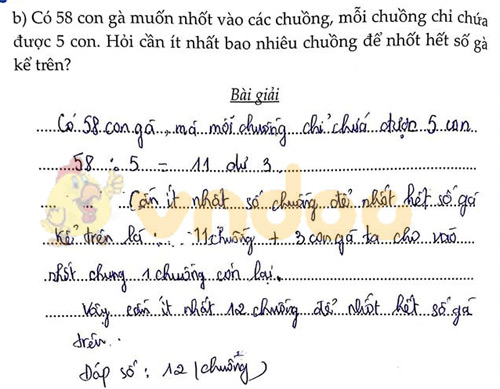 b) Có 58 con gà muốn nhốt vào các chuồng, mỗi chuồng chỉ chứa
được 5 con. Hỏi cần ít nhất bao nhiêu chuồng để nhốt hết số gà
kể trên?
Bài giải
Có 58 con gà, mà mỗi chuồng chỉ chứa được 5 con
58 : 5 = 11 dư 3
Cần ít nhất số chuồng để nhốt hết số gà
kể trên là : 11 chuồng + 3 con gà ta cho vào
nhốt chung 1 chuồng còn lại.
Vậy cần ít nhất 12 chuồng để nhốt hết số gà
trên.
Đáp số : 12 (chuồng)
vndoo